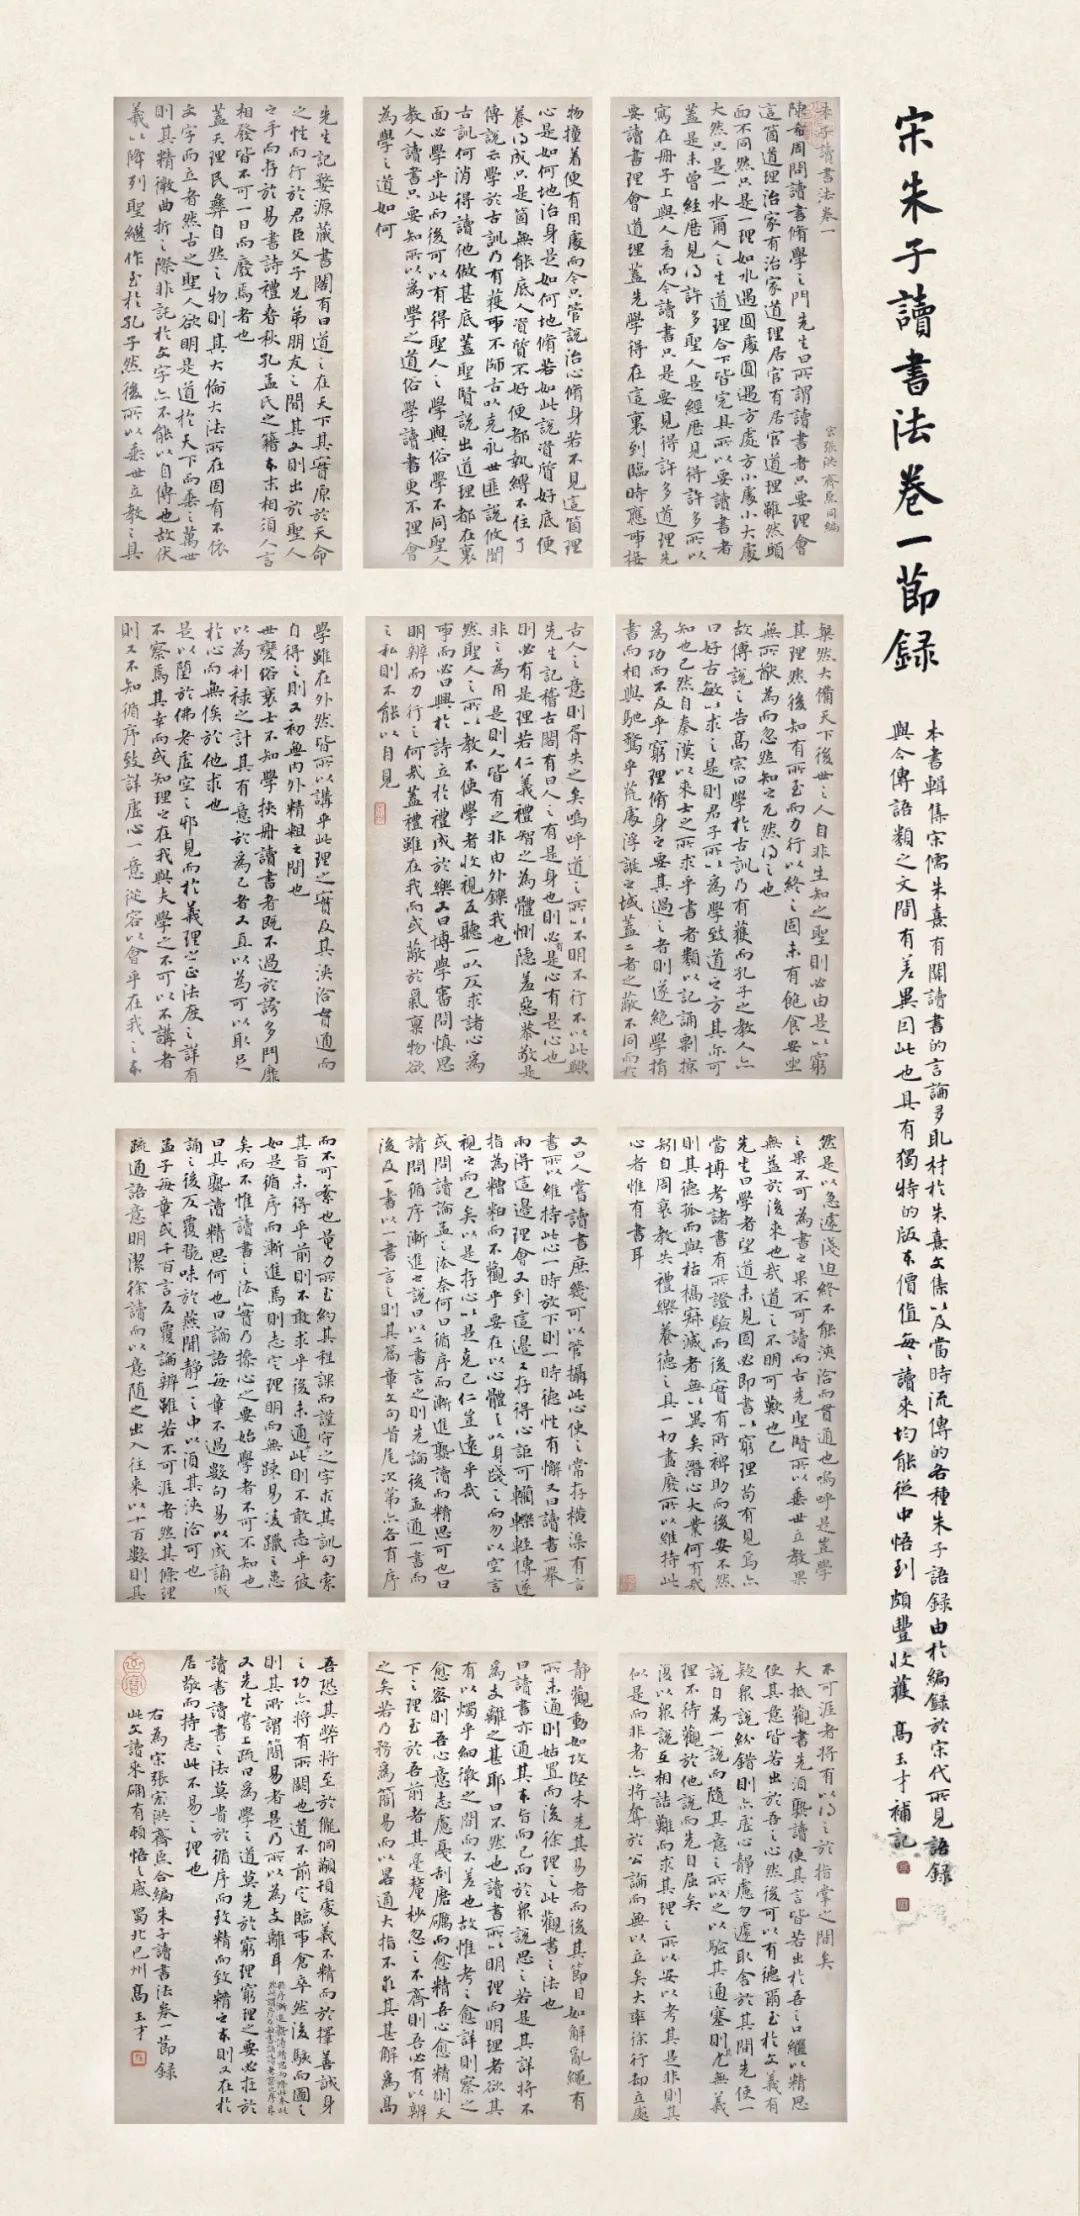 宋朱子讀書法卷一節録
本書輯集宋儒朱熹有關讀書的言論多取材於朱熹文集以及當時流傳的各種朱子語録由於編録於宋代所見語録
與今傳語類之文間有差異因此也具有獨特的版本價值每每讀來均能從中悟到頗豐收獲 高玉才補記
朱子讀書法卷一 宋張洪齊熙同編
陳希周問讀書脩學之門先生曰所謂讀書者只要理會
這箇道理治家有治家道理居官有居官道理雖然頭
面不同然只是一理如水遇圓處圓遇方處方小處小大處
大然只是一水爾人之生道理合下皆完具所以要讀書者
蓋是未曾經歷見得許多聖人是經歷見得許多所以
寫在冊子上與人看而今讀書只是要見得許多道理先
要讀書理會道理蓋先學得在這裏到臨時應事接
物撞着便有用處而今只管說治心脩身若不見這箇理
心是如何地治身是如何地脩若如此說資質好底便
養得成只是箇無能底人資質不好便都執縛不住了
傳說云學於古訓乃有獲事不師古以克永世匪說攸聞
古訓何消得讀他做甚底蓋聖賢說出道理都在裏
面必學乎此而後可以有得聖人之學與俗學不同聖人
教人讀書只要知所以為學之道俗學讀書更不理會
為學之道如何
先生記婺源藏書閣有曰道之在天下其實原於天命
之性而行於君臣父子兄弟朋友之間其文則出於聖人
之手而存於易書詩禮春秋孔孟氏之籍本末相須人言
相發皆不可一日而廢焉者也
蓋天理民彝自然之物則其大倫大法所在固有不依
文字而立者然古之聖人欲明是道於天下而垂之萬世
則其精微曲折之際非託於文字亦不能以自傳也故伏
羲以降列聖繼作至於孔子然後所以垂世立教之具
粲然大備天下後世之人自非生知之聖則必由是以窮
其理然後知有所至而力行以終之固未有飽食安坐
無所猷為而忽然知之兀然得之也
故傳說之告高宗曰學於古訓乃有獲而孔子之教人亦
曰好古敏以求之是則君子所以為學致道之方其亦可
知也已然自秦漢以來士之所求乎書者類以記誦剽掠
為功而不及乎窮理脩身之要其過之者則遂絕學捐
書而相與馳騖乎荒虛浮誕之域蓋二者之蔽不同而於
古人之意則胥失之矣嗚呼道之所以不明不行不以此歟
先生記稽古閣有曰人之有是身也則必有是心有是心也
則必有是理若仁義禮智之為體惻隱羞惡恭敬是
非之為用是則人皆有之非由外鑠我也
然聖人之所以教不使學者收視反聽一以反求諸心為
事而必曰興於詩立於禮成於樂又曰博學審問慎思
明辨而力行之何哉蓋禮雖在我而或蔽於氣稟物欲
之私則不能以自見
學雖在外然皆所以講乎此理之實及其浹洽貫通而
自得之則又初無內外精粗之間也
世變俗衰士不知學挾冊讀書者既不過於誇多鬥靡
以為利祿之計其有意於為己者又直以為可以取足
於心而無俟於他求也
是以墮於佛老虛空之邪見而於義理之正法度之詳有
不察焉其幸而或知理之在我與夫學之不可以不講者
則又不知循序致詳虛心一意從容以會乎在我之本
然是以急遽淺迫終不能浹洽而貫通也嗚呼是豈學
之果不可為書之果不可讀而古先聖賢所以垂世立教果
無益於後來也哉道之不明可歎也已
先生曰學者望道未見固必即書以窮理苟有見焉亦
當博考諸書有所證驗而後實有所裨助而後安不然
則其德孤而與枯槁寂滅者無以異矣潛心大業何有哉
矧自周衰教失禮樂養德之具一切盡廢所以維持此
心者惟有書耳
又曰人當讀書庶幾可以管攝此心使之常存橫渠有言
書所以維持此心一時放下則一時德性有懈又曰讀書一舉
而得這邊理會又到這邊又存得心詎可轥轢輕傳遽
指為糟粕而不觀乎要在以心體之以身踐之而勿以空言
視之而已矣以是存心以是克己仁豈遠乎哉
或問讀論孟之法奈何曰循序而漸進熟讀而精思可也曰
請問循序漸進之說曰以二書言之則先論後孟通一書而
後及一書以一書言之則其篇章文句首尾次第亦各有序
而不可紊也量力所至約其程課而謹守之字求其訓句索
其旨未得乎前則不敢求乎後未通此則不敢志乎彼
如是循序而漸進焉則志定理明而無疎易淩躐之患
矣而不惟讀書之法實乃操心之要始學者不可不知也
曰其熟讀精思何也曰論語每章不過數句易以成誦成
誦之後反覆翫味於燕閒靜一之中以須其浹洽可也
孟子每章或千百言反覆論辨雖若不可涯者然其條理
疏通語意明潔徐讀而以意隨之出入往來以十百數則其
不可涯者將有以得之於指掌之間矣
大抵觀書先須熟讀使其言皆若出於吾之口繼以精思
使其意皆若出於吾之心然後可以有得爾至於文義有
疑眾說紛錯則亦虛心靜慮勿遽取舍於其間先使一
說自為一說而隨其意之所以之以驗其通塞則尤無義
理不待觀於他說而先自屈矣
復以眾說互相詰難而求其理之所以安以考其是非則其
似是而非者亦將奪於公論而無以立矣大率徐行却立處
靜觀動如攻堅木先其易者而後其節目如解亂繩有
所未通則姑置而後徐理之此觀書之法也
曰讀書亦通其本旨而已而於眾說思之若是其詳將不
為支離之甚耶曰不然也讀書所以明理而明理者欲其
有以燭乎細微之間而不差也故惟考之愈詳則察之
愈密則吾心意志慮戛刮磨礪而愈精吾心愈精則天
下之理至於吾前者其毫釐秒忽之不齊則吾必有以辨
之矣若乃務為簡易而以畧通大指不求其甚解為高
吾恐其弊將至於儱侗顢頇處義不精而於擇善誠身
之功亦將有所闕也道不前定臨事倉卒然後駭而圖之
則其所謂簡易者是乃所以為支離耳
又先生嘗上疏曰為學之道莫先於窮理窮理之要必在於
讀書讀書之法莫貴於循序而致精而致精之本則又在於
居敬而持志此不易之理也
右為宋張宏洪齊熙合編朱子讀書法卷一節録
此文讀來確有頓悟之感 蜀北巴州高玉才